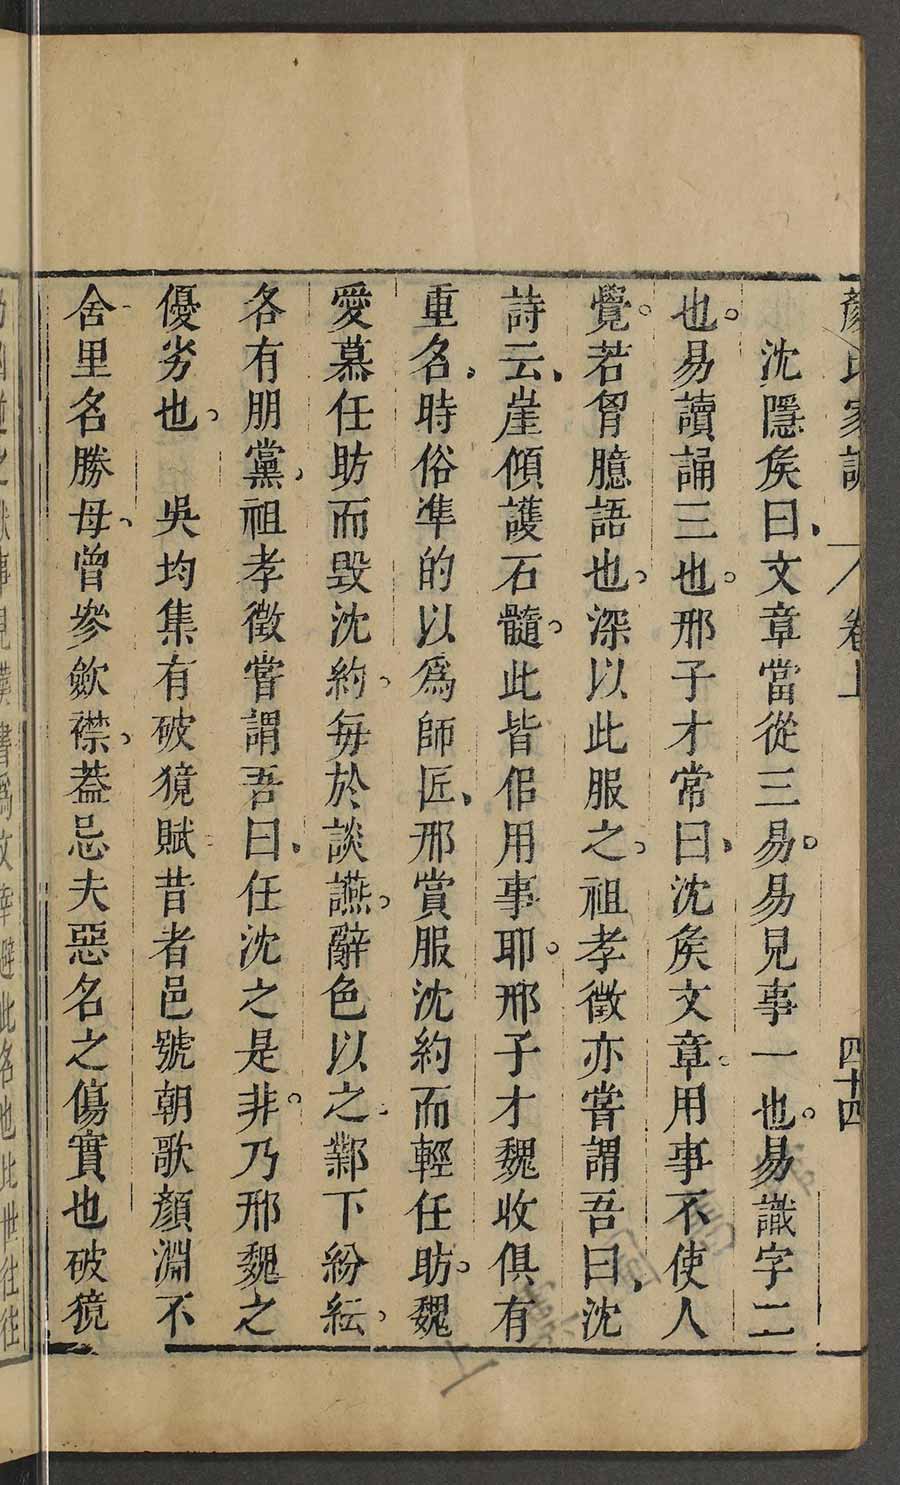 顏氏家訓 卷上 四十四
沈隱矦曰、文章當從三易。易見事一也。易識字二
也。易讀誦三也。邢子才常曰、沈矦文章。用事不使人
覺。若胷臆語也。深以此服之。祖孝徵亦嘗謂吾曰、沈
詩云、崖傾護石髓。此皆佀用事耶。邢子才魏收俱有
重名、時俗準的以爲師匠、邢賞服沈約而輕任昉。魏
愛慕任昉而毀沈約。每於談讌。辭色以之。鄴下紛紜。
各有朋黨。祖孝徵嘗謂吾曰、任沈之是非。乃邢魏之
優劣也。　吳均集有破獍賦昔者邑號朝歌顏淵不
舍里名勝母、曾參歛襟、蓋忌夫惡名之傷實也破獍